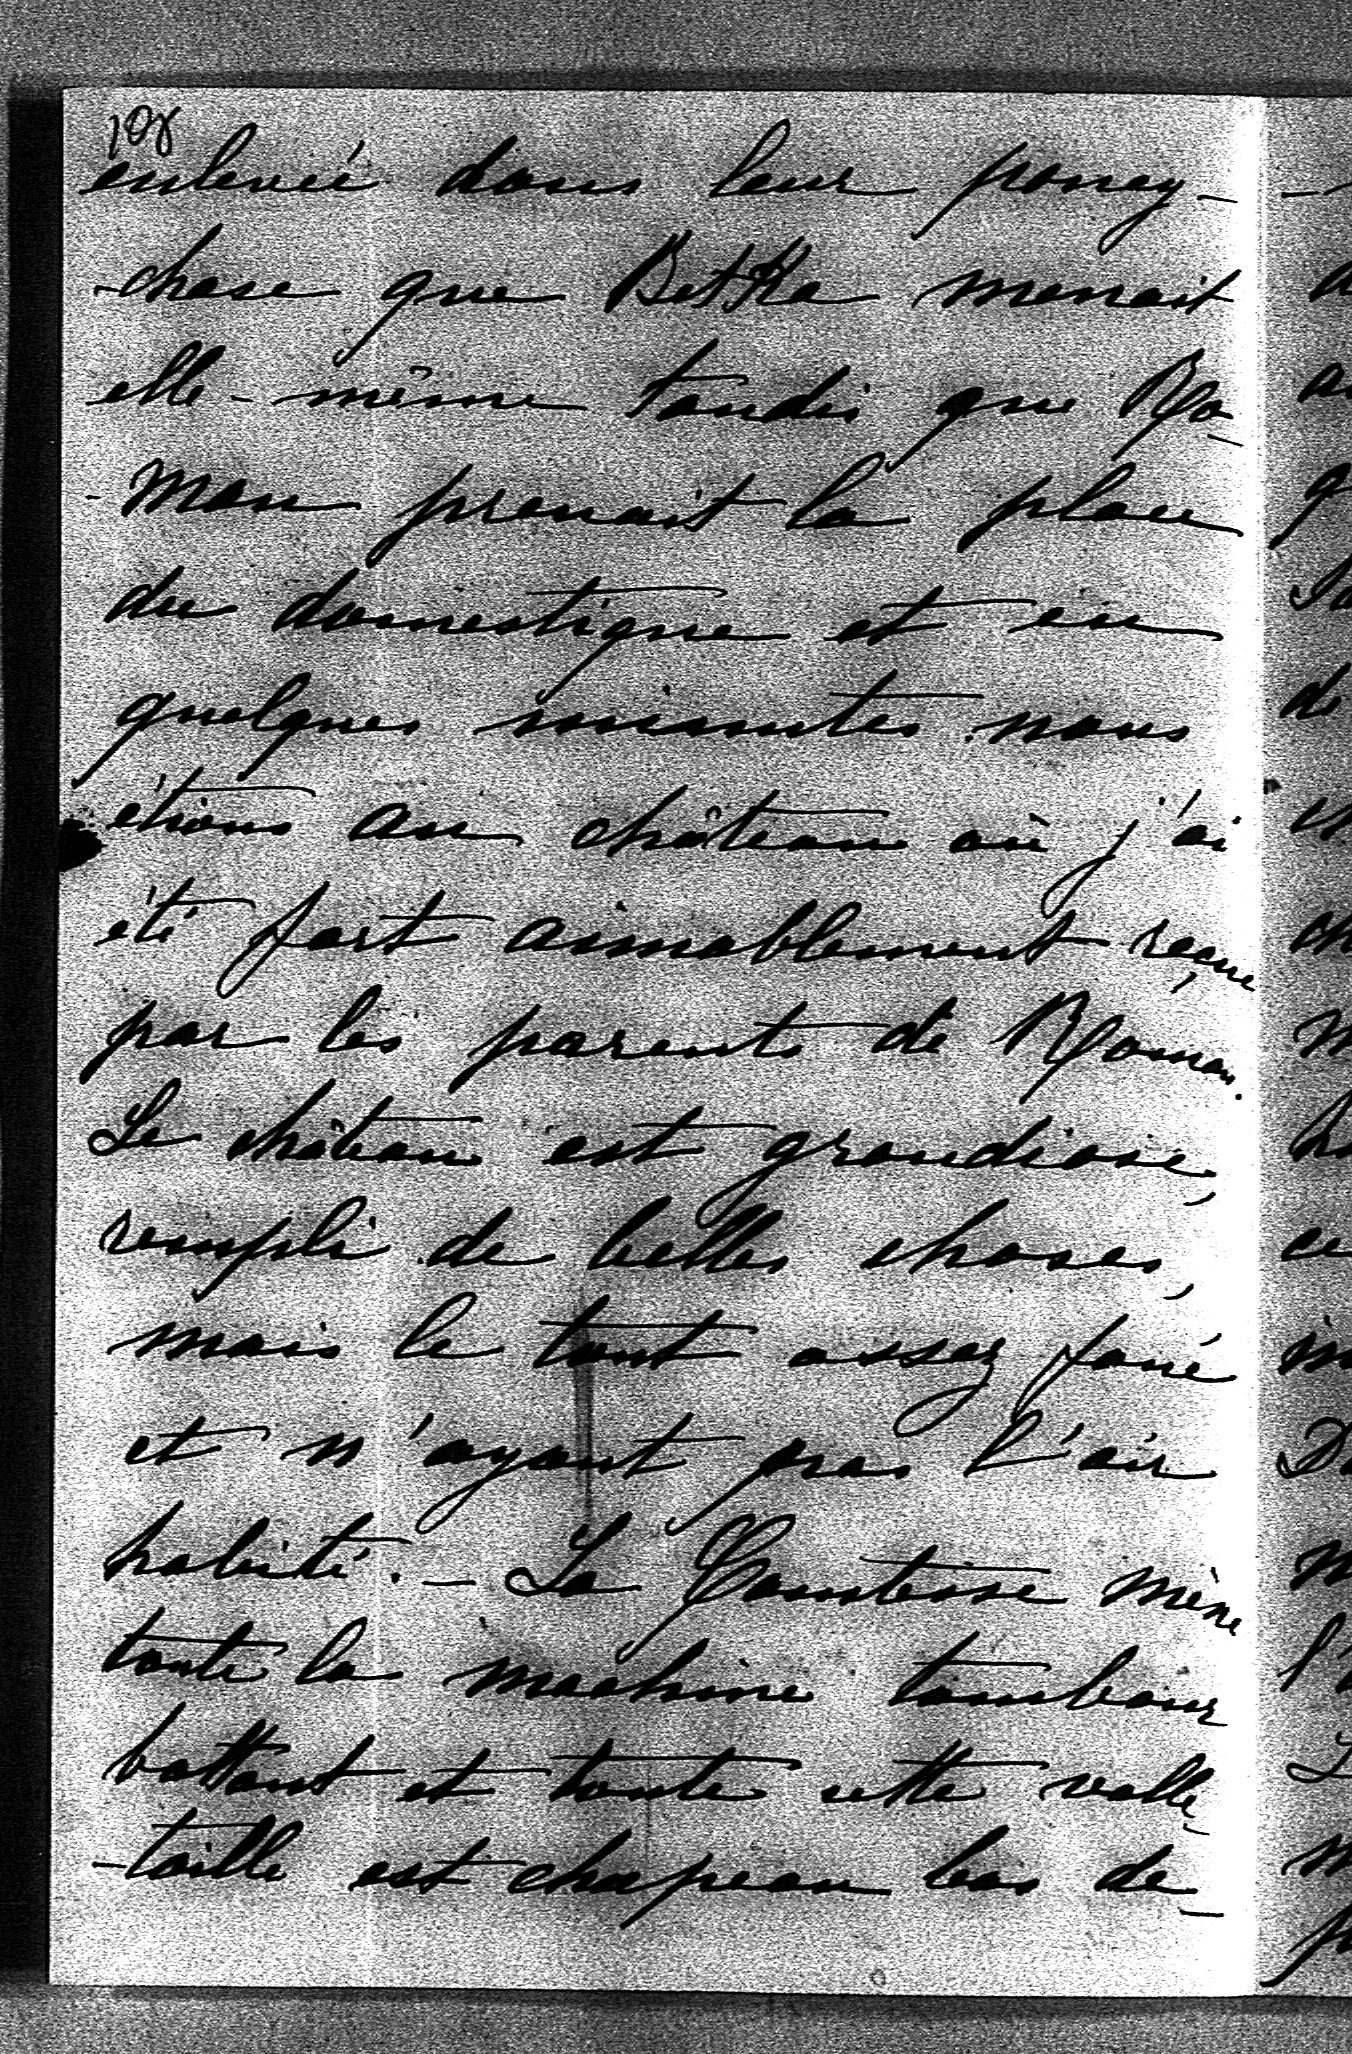 108
enlevée dans leur poney-
-chese que Betka menait
elle-même tandis que Ro-
-man prenait la place
du domestique et en
quelques minutes nous
étions au château où j'ai
été fort aimablement reçue
par les parents de Roman.
Le château est grandiose,
rempli de belles choses,
mais le tout assez fané
et n'ayant pas l'air
habité. - La Comtesse mène
toute la machine tambour
battant et toute cette valle-
-taille est chapeau bas de-